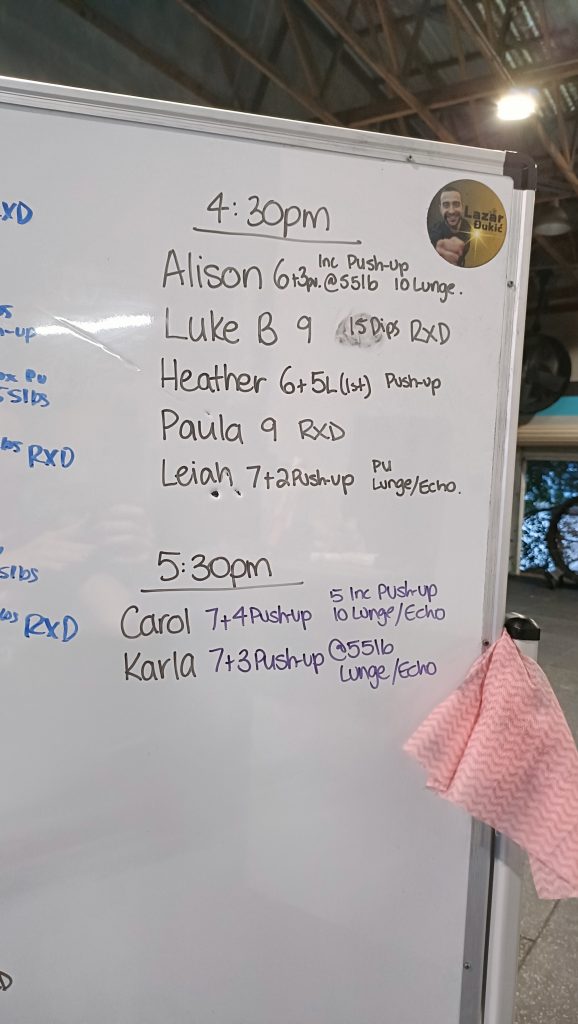 4:30pm
Lazar
Đukić
Inc Push-up
Alison 6+3pu. @55lb 10 Lunge.
Luke B 9 15 Dips RXD
Heather 6+5L(1st) Push-up
Paula 9 RXD
PU
Leiah 7+2Push-up Lunge/Echo.
5:30pm
5 Inc Push-up
Carol 7+4Push-up 10 Lunge/Echo
Karla 7+3Push-up @55lb
Lunge/Echo
XD
-up
Pu
55lbs
RXD
5lbs
RXD